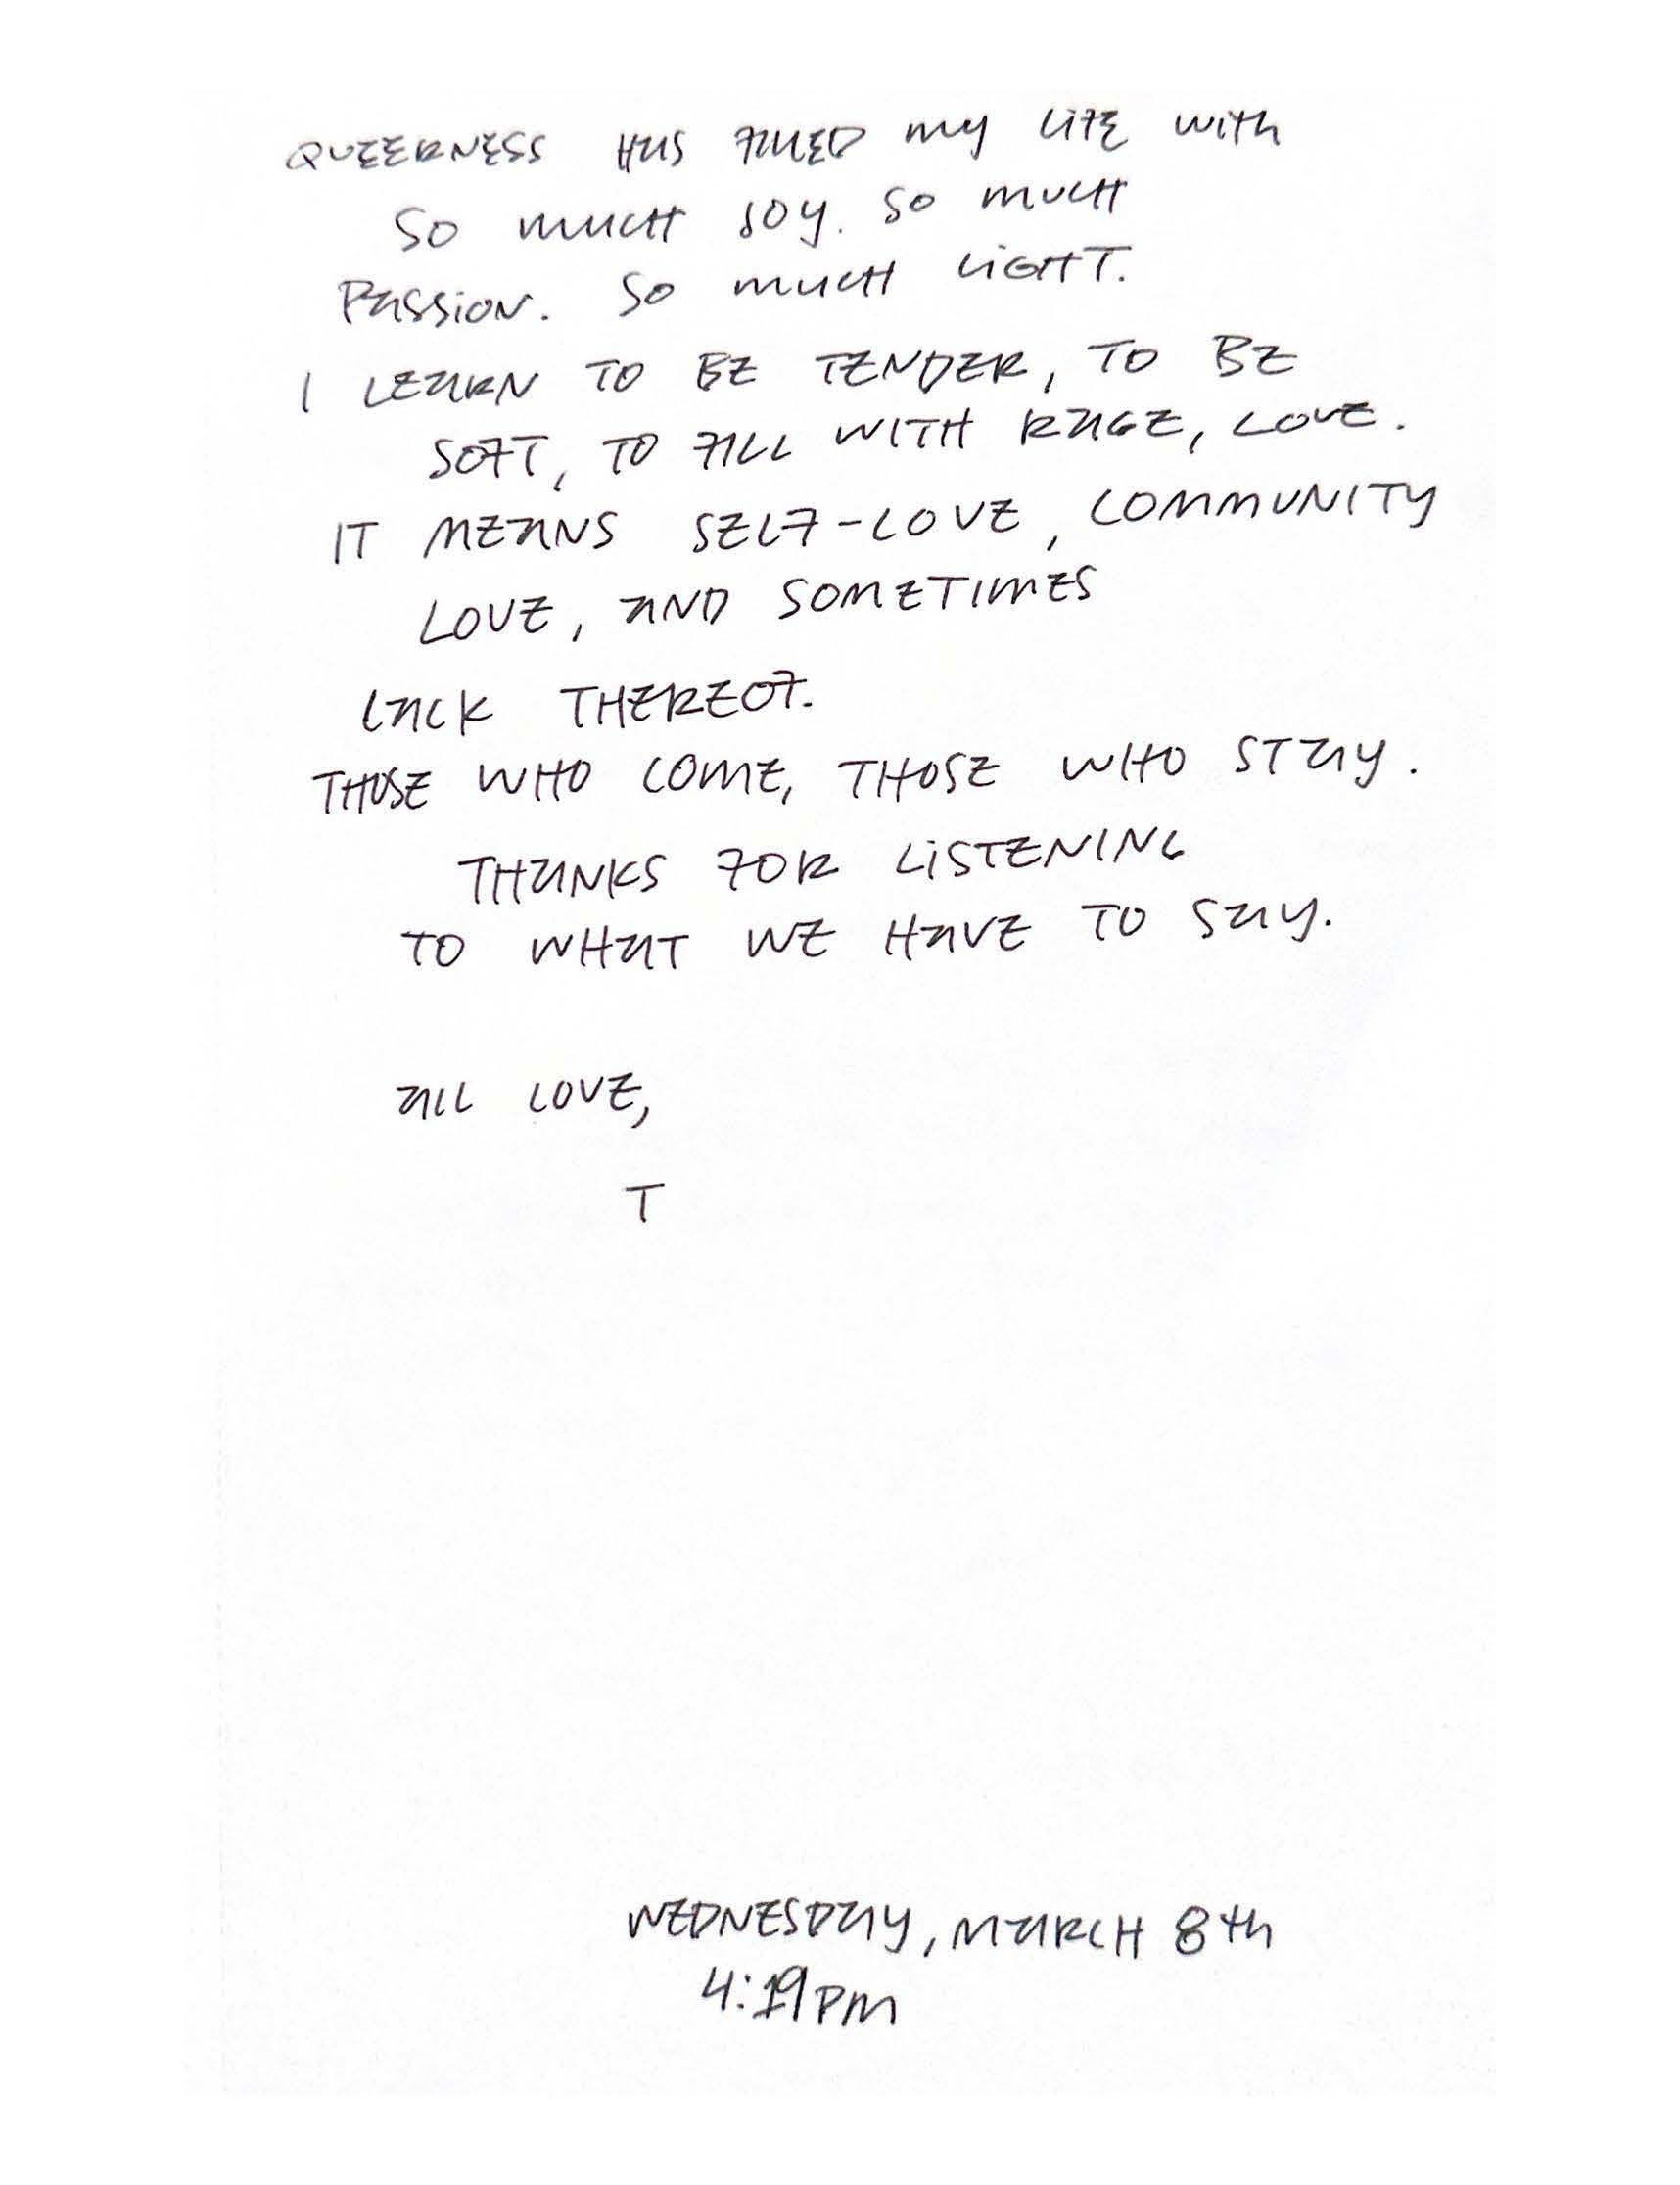 QUEERNESS HAS FILLED my LIFE with
SO MUCH JOY. SO MUCH
PASSION. SO MUCH LIGHT.
I LEARN TO BE TENDER, TO BE
SOFT, TO FILL WITH RAGE, LOVE.
IT MEANS SELF-LOVE, COMMUNITY
LOVE, AND SOMETIMES
LACK THEREOF.
THOSE WHO COME, THOSE WHO STAY.
THANKS FOR LISTENING
TO WHAT WE HAVE TO SAY.
ALL LOVE,
T
WEDNESDAY, MARCH 8th
4:19PM